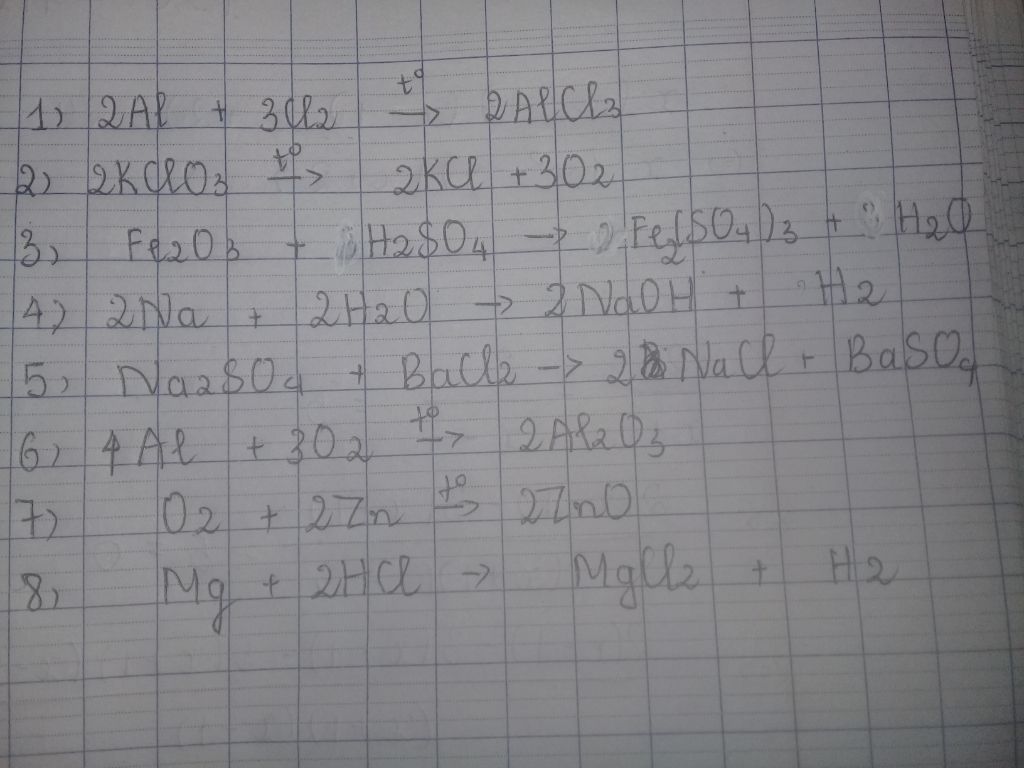 1) 2Al + 3Cl2 t° → 2AlCl3
2) 2KClO3 t° → 2KCl + 3O2
3) Fe2O3 + H2SO4 → Fe2(SO4)3 + H2O
4) 2Na + 2H2O → 2NaOH + H2
5) Na2SO4 + BaCl2 → 2 NaCl + BaSO4
6) 4Al + 3O2 t° → 2Al2O3
7) O2 + 2Zn t° → 2ZnO
8) Mg + 2HCl → MgCl2 + H2